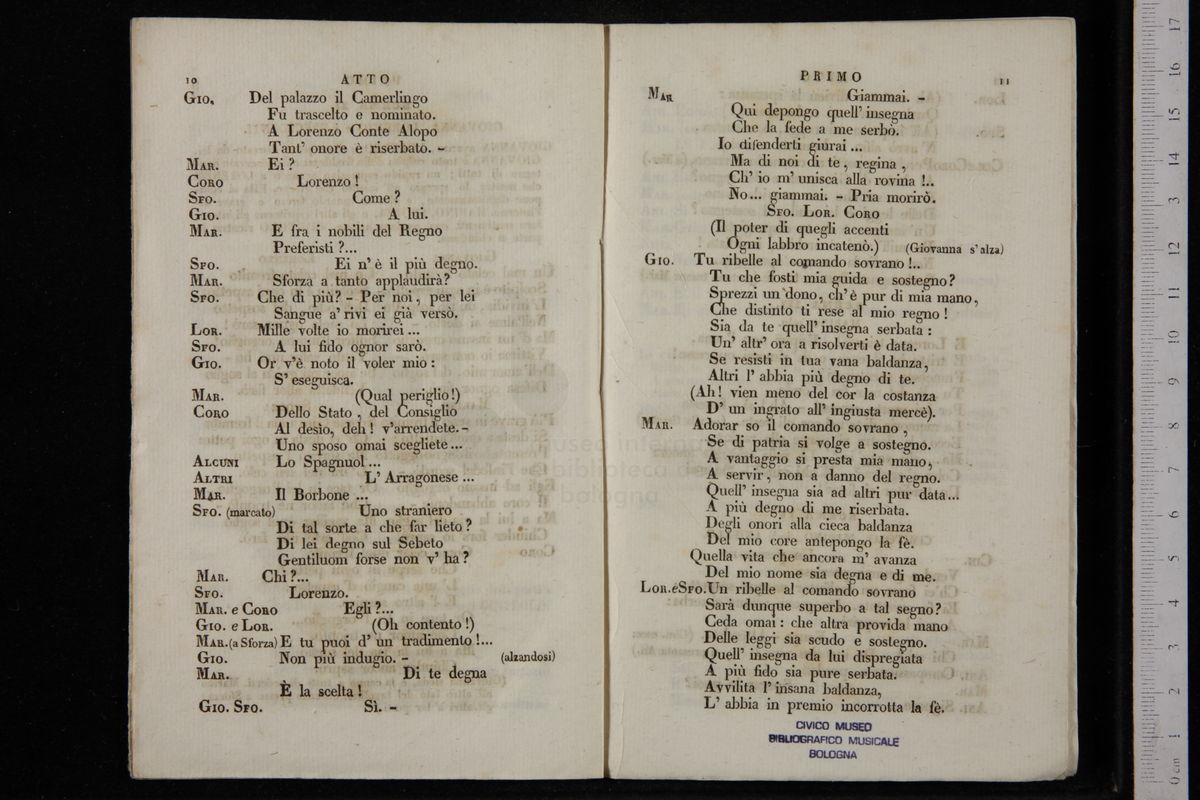 10 ATTO
Gio. Del palazzo il Camerlingo
Fu trascelto e nominato.
A Lorenzo Conte Alopo
Tant' onore è riserbato. –
Mar. Ei ?
Coro Lorenzo !
Sfo. Come ?
Gio. A lui.
Mar. E fra i nobili del Regno
Preferisti ?...
Sfo. Ei n' è il più degno.
Mar. Sforza a tanto applaudirà?
Sfo. Che di più? – Per noi, per lei
Sangue a' rivi ei già versò.
Lor. Mille volte io morirei ...
Sfo. A lui fido ognor sarò.
Gio. Or v'è noto il voler mio :
S' eseguisca.
Mar. (Qual periglio !)
Coro Dello Stato , del Consiglio
Al desìo, deh ! v'arrendete. –
Uno sposo omai scegliete ...
Alcuni Lo Spagnuol ...
Altri L' Arragonese ...
Mar. Il Borbone ...
Sfo. (marcato) Uno straniero
Di tal sorte a che far lieto ?
Di lei degno sul Sebeto
Gentiluom forse non v' ha ?
Mar. Chi ?...
Sfo. Lorenzo.
Mar. e Coro Egli ?...
Gio. e Lor. (Oh contento !)
Mar. (a Sforza) E tu puoi d' un tradimento !...
Gio. Non più indugio. – (alzandosi)
Mar. Di te degna
È la scelta !
Gio. Sfo. Sì. –
PRIMO 11
Mar Giammai. –
Qui depongo quell' insegna
Che la fede a me serbò.
Io difenderti giurai ...
Ma di noi di te , regina ,
Ch' io m' unisca alla rovina !..
No... giammai. – Pria morirò.
Sfo. Lor. Coro
(Il poter di quegli accenti
Ogni labbro incatenò.) (Giovanna s' alza)
Gio. Tu ribelle al comando sovrano !..
Tu che fosti mia guida e sostegno ?
Sprezzi un dono, ch' è pur di mia mano,
Che distinto ti rese al mio regno !
Sia da te quell' insegna serbata :
Un' altr' ora a risolverti è data.
Se resisti in tua vana baldanza,
Altri l' abbia più degno di te.
(Ah! vien meno del cor la costanza
D' un ingrato all' ingiusta mercè).
Mar. Adorar so il comando sovrano ,
Se di patria si volge a sostegno.
A vantaggio si presta mia mano,
A servir, non a danno del regno.
Quell' insegna sia ad altri pur data...
A più degno di me riserbata.
Degli onori alla cieca baldanza
Del mio core antepongo la fè.
Quella vita che ancora m' avanza
Del mio nome sia degna e di me.
Lor. e Sfo. Un ribelle al comando sovrano
Sarà dunque superbo a tal segno ?
Ceda omai : che altra provida mano
Delle leggi sia scudo e sostegno.
Quell' insegna da lui dispregiata
A più fido sia pure serbata.
Avvilita l' insana baldanza,
L' abbia in premio incorrotta la fè.
CIVICO MUSEO
BIBLIOGRAFICO MUSICALE
BOLOGNA